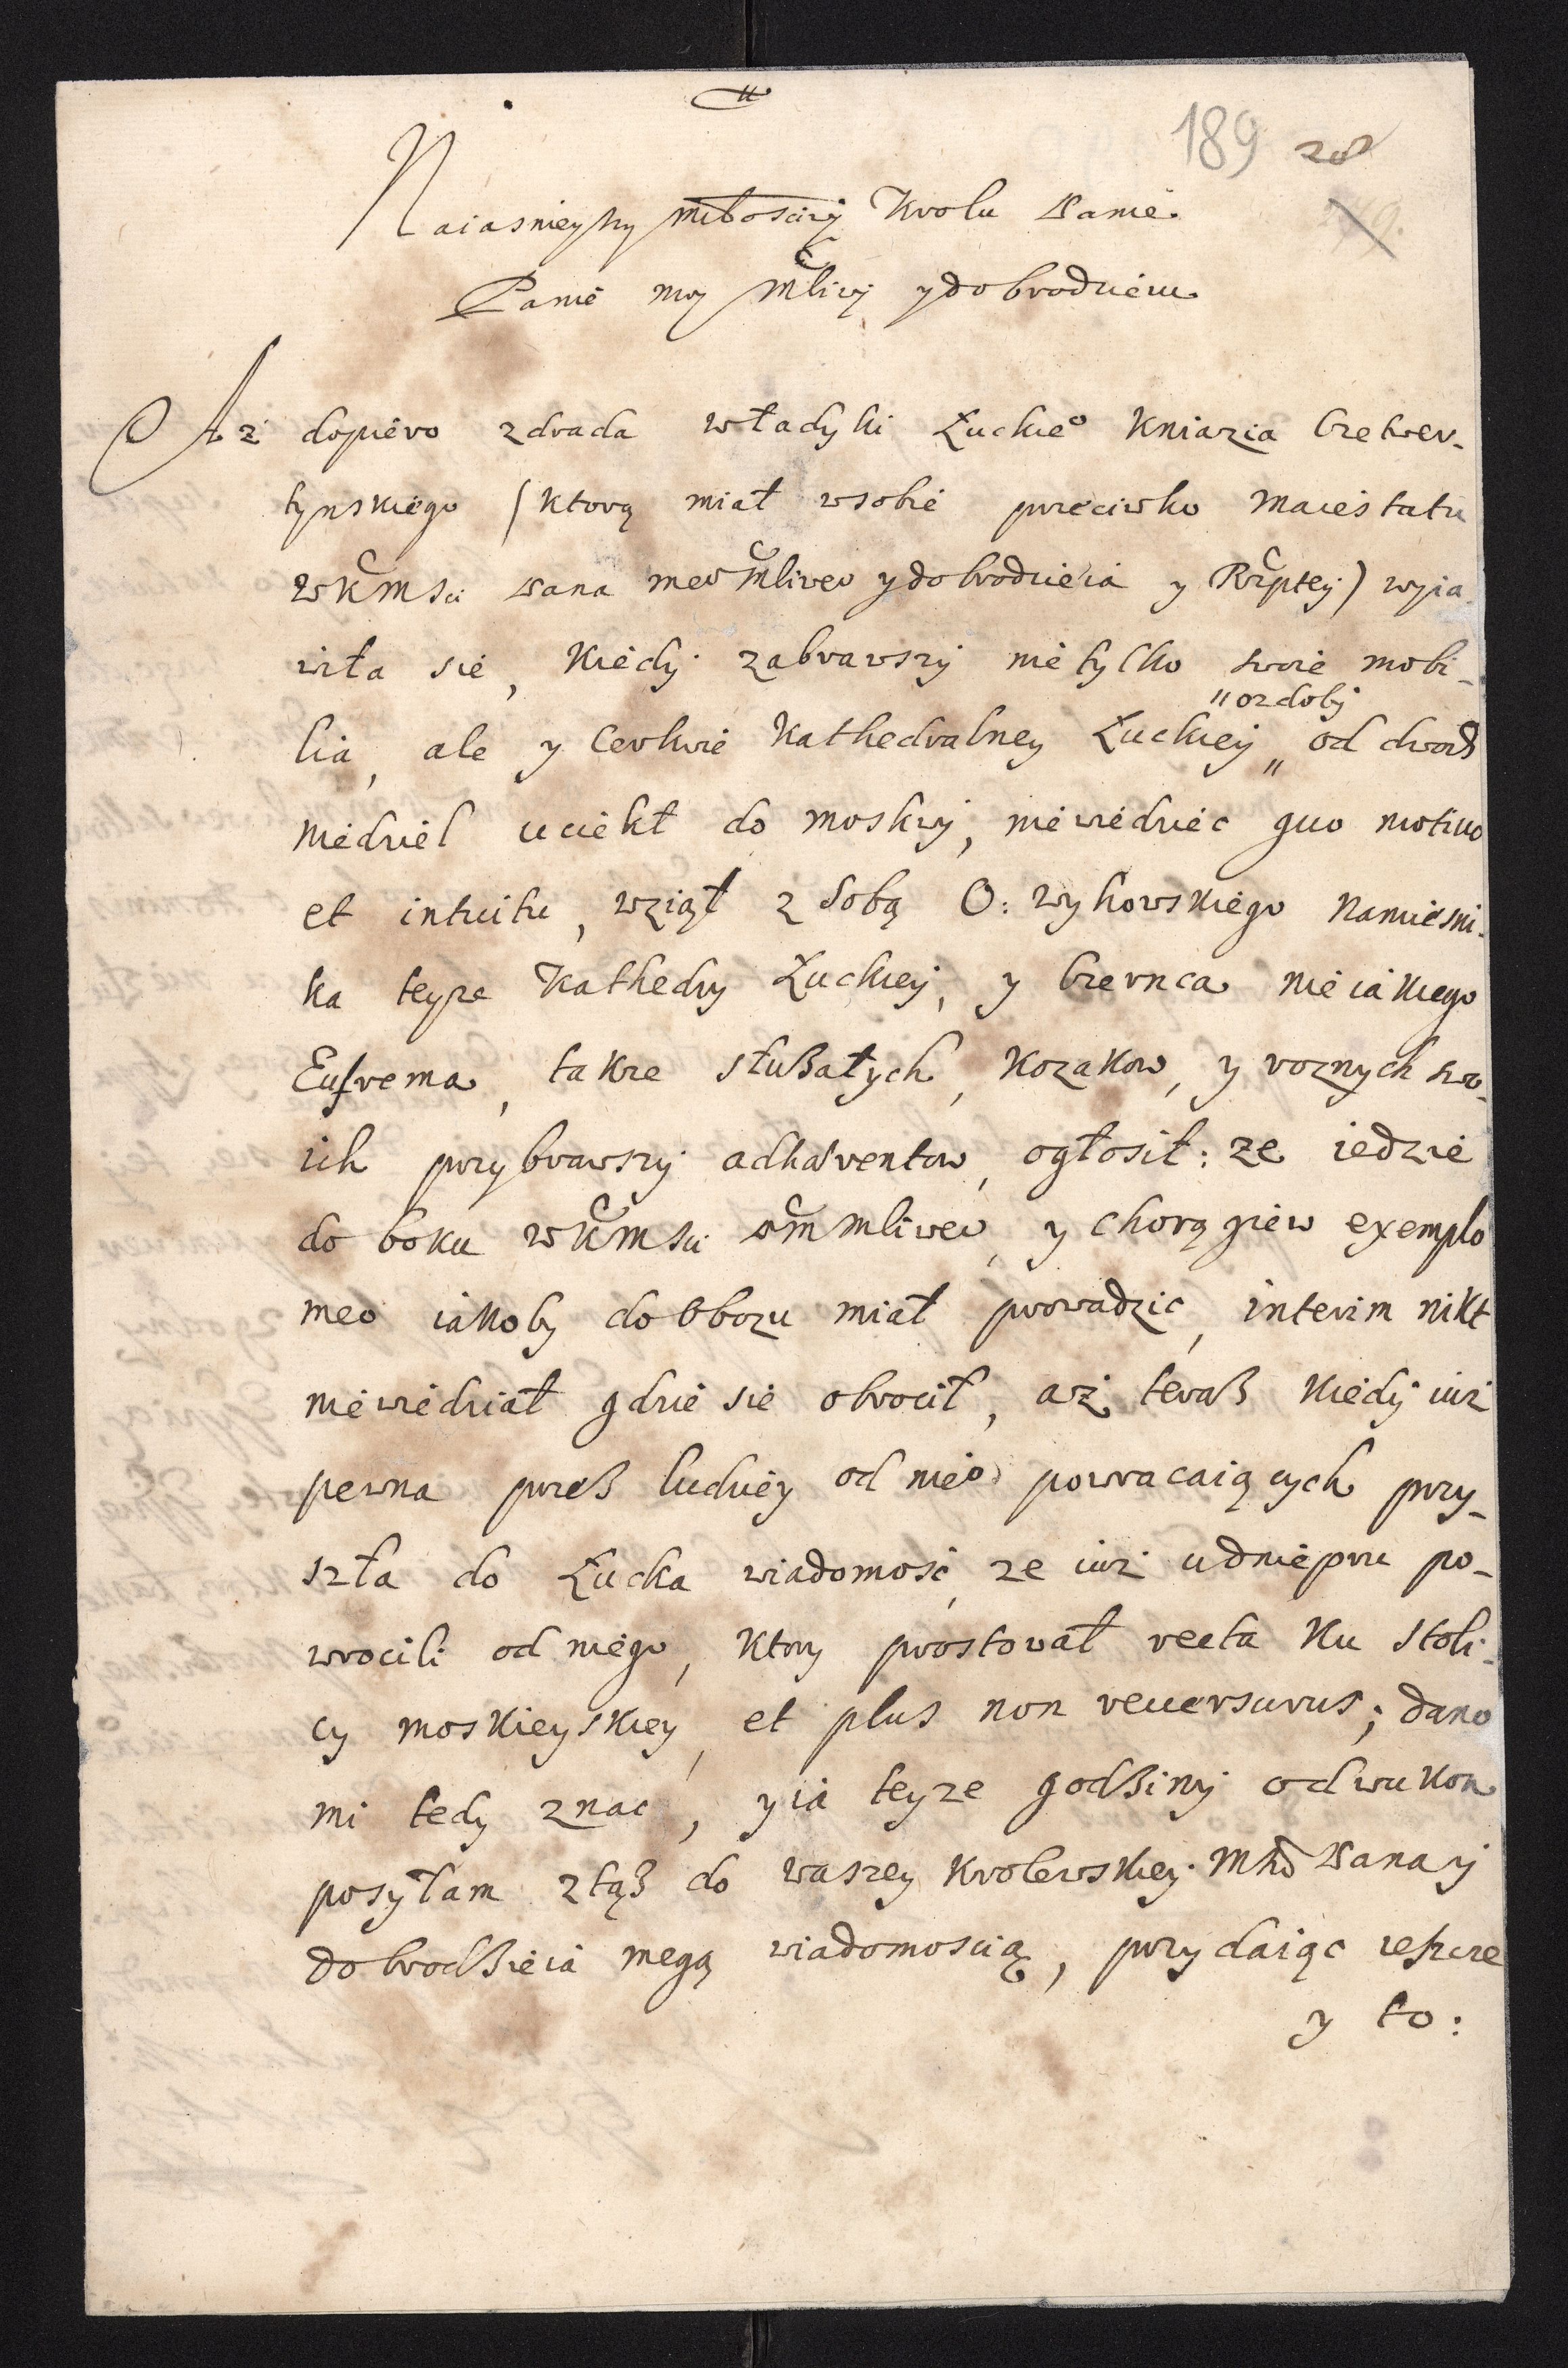 189 28
Naiasnieyszy miłosciwy Krolu Panie
Panie moy Mliwy y dobrodzieiu
Az dopiero zdrada władyki Łuckieo Kniazia Czetwer-
tynskiego (ktorą miał w sobie przeciwko Maiestatu
WKMsci Pana meo Mliweo y dobrodzieia y Rzptey) wyia-
wiła sie, kiedy zabrawszy nie tylko swoie mobi-
lia, ale y Cerkwie Kathedralney Łuckiey „ od dwoch
„ ozdoby
niedziel uciekł do Moskwy, niewiedziec quo motiuo
et intuitu, wziął z sobą O: Wyhowskiego Namiesni-
ka teyze Kathedry Łuckiey, y Czernca nieiakiego
Eufrema, takze słuβałych, Kozakow, y roznych swo-
ich przybrawszy adhaerentow, ogłosił: ze iedzie
do boku WKMsci PM Mliweo, y chorągiew exemplo
meo iakoby do Obozu miał prowadzic, interim nikt
niewiedział gdzie sie obrocił, aż teraβ kiedy iuż
pewna przeβ ludziey od nieo powracaiących przy-
szła do Łucka wiadomosć, ze iuż u Dniepru po-
wrocili od niego, ktory prostował recta ku stoli-
cy moskieyskiey, et plus non reuersurus; dano
mi tedy znac, y ia teyze godβiny o dwu kon
posyłam z tąβ do waszey Krolewskiey Mści Pana y
dobrodβieia mego wiadomoscią, przydaiąc ieszcze
y to: